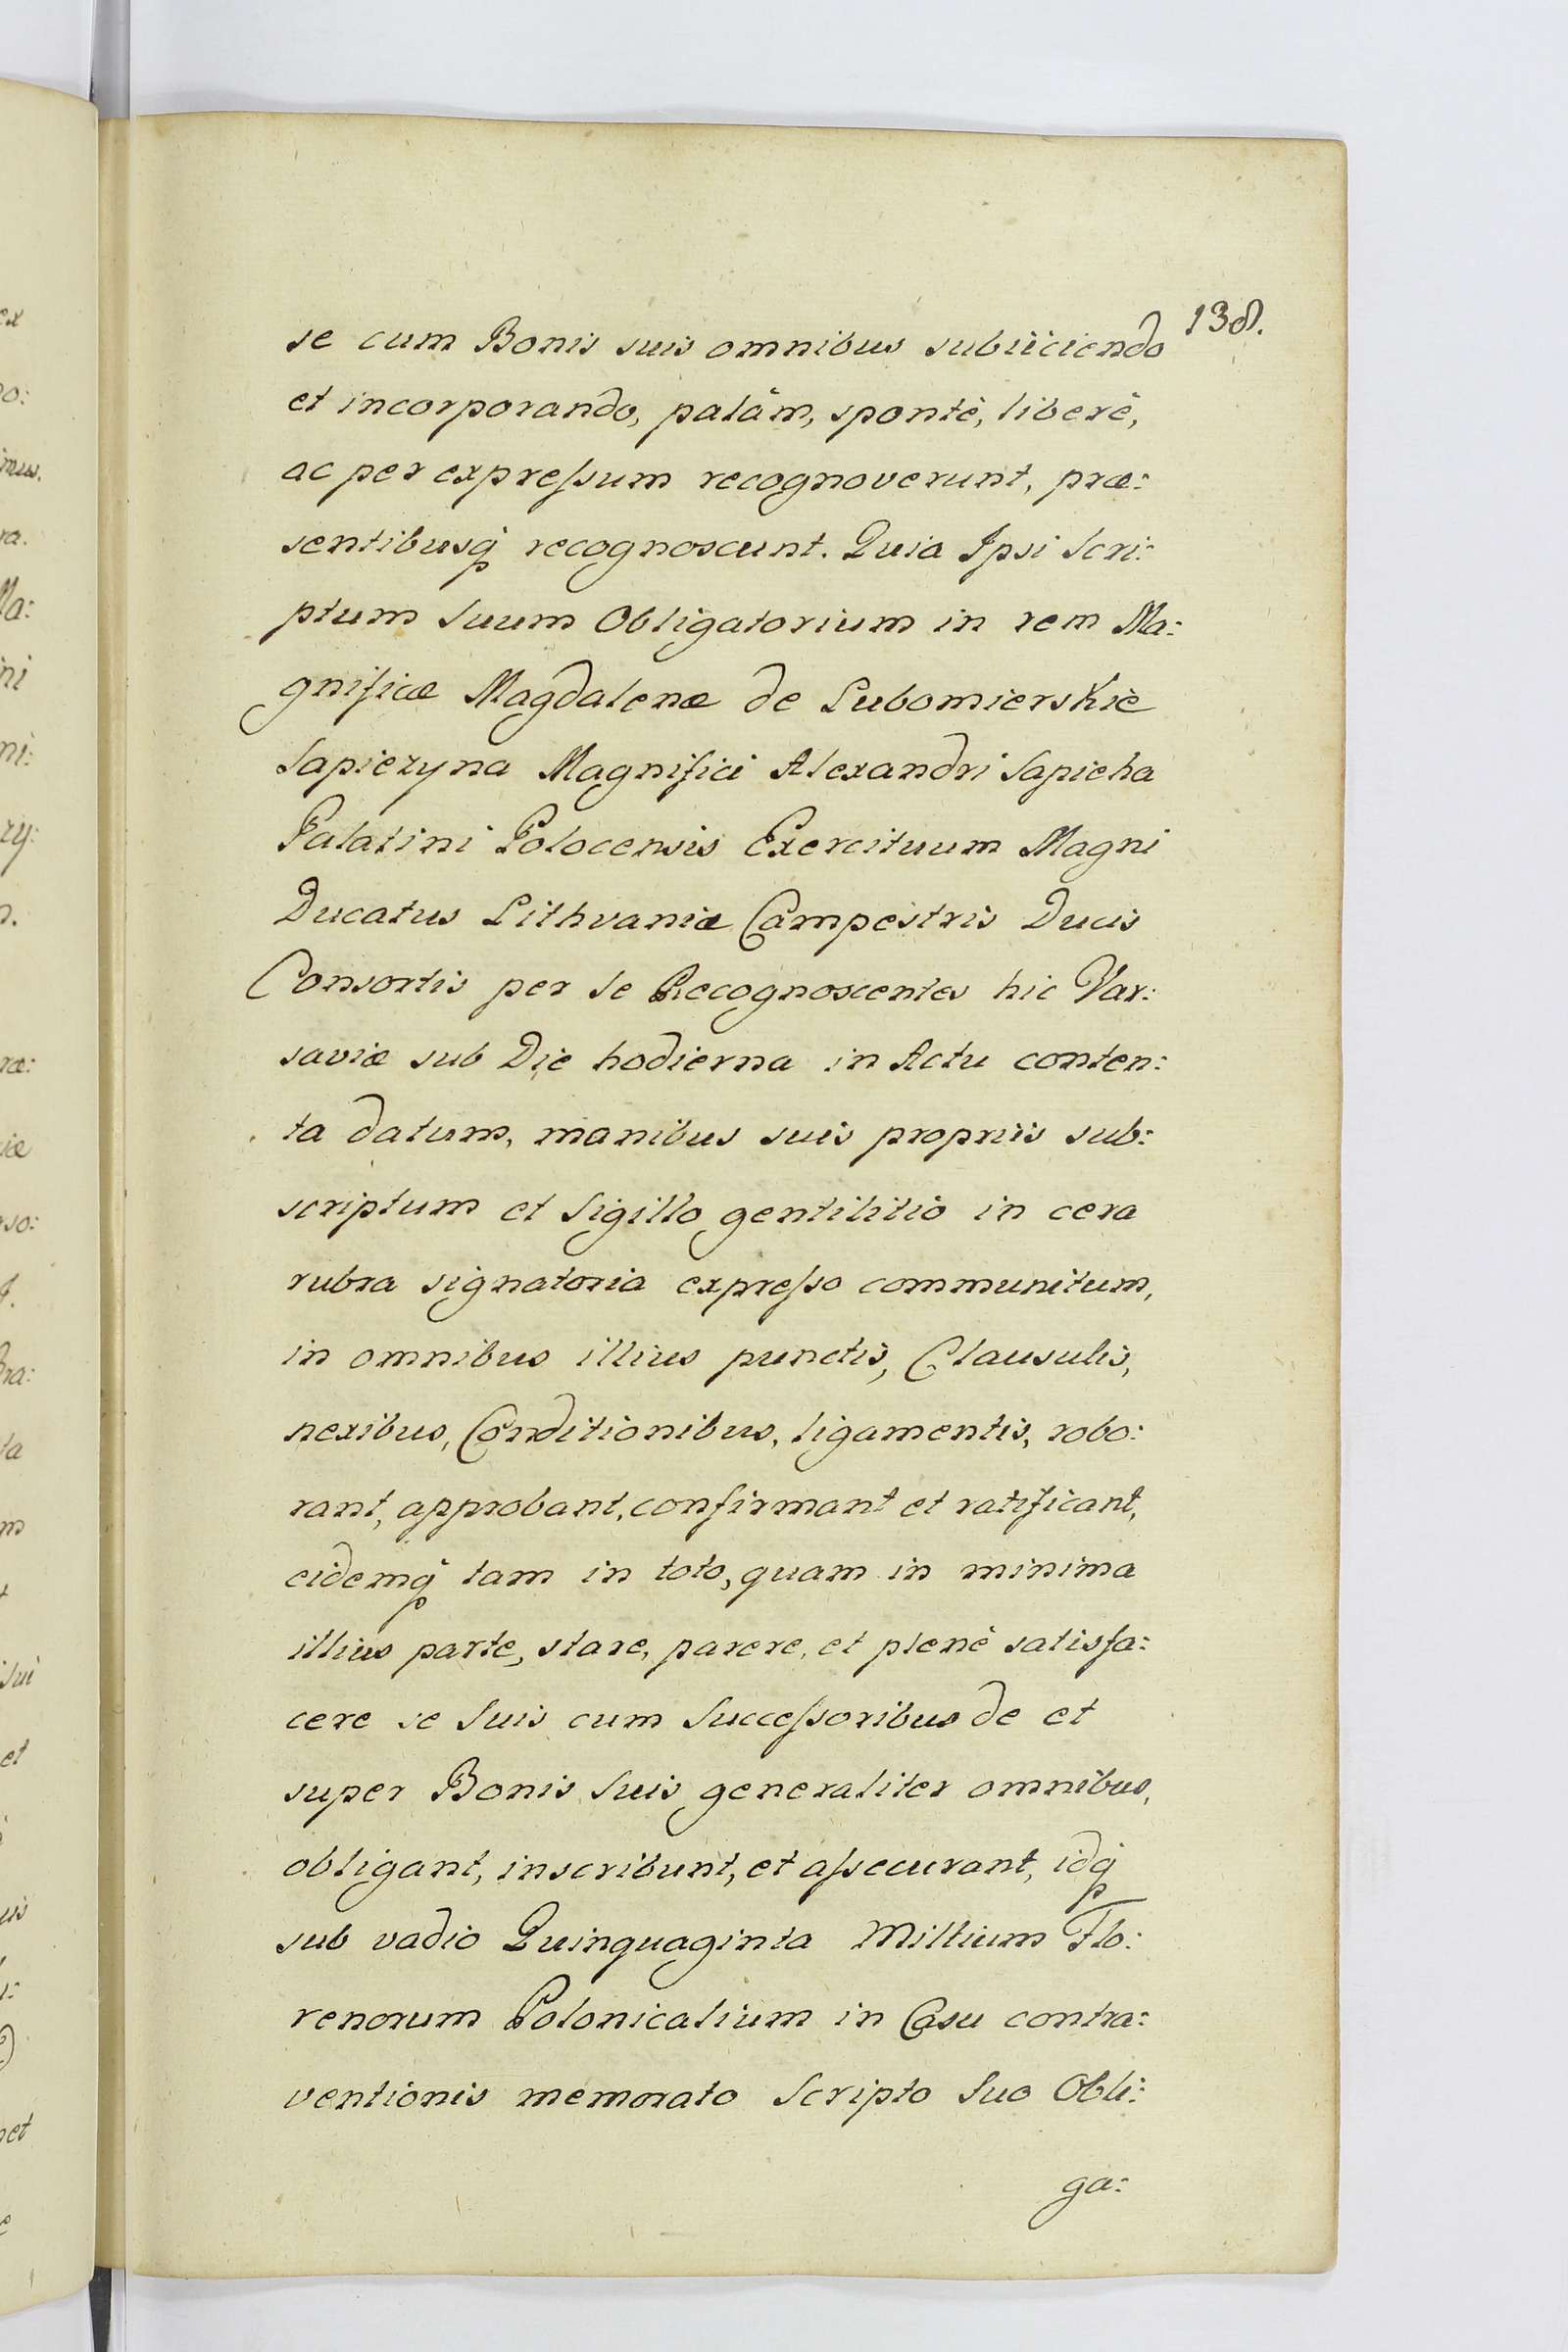 138.
se cum Bonis suis omnibus subiiciendo
et incorporando, palàm, spontè, liberè,
ac per expreſsum recognoverunt, præ:
sentibusq́ recognoscunt. Quia Ipsi Scri:
ptum Suum Obligatorium in rem Ma:
gnificæ Magdalenæ de Lubomierskie
Sapiezyna Magnifici Alexandri Sapieha
Palatini Polocensis Exercituum Magni
Ducatus Lithvaniæ Campestris Ducis
Consortis per se Recognoscentes hic Var:
saviæ sub Die hodierna in Actu conten:
ta datum, manibus suis propriis sub:
scriptum et Sigillo gentilitio in cera
rubra signatoria expreſso communitum,
in omnibus illius punctis, Clausulis,
nexibus, Conditionibus, ligamentis, robo:
rant, approbant, confirmant et ratificant,
eidemq́ tam in toto, quam in minima
illius parte, stare, parere, et plenè satisfa:
cere se Suis cum Succeſsoribus de et
super Bonis Suis generaliter omnibus,
obligant, inscribunt, et aſsecurant, idq́
sub vadio Quinquaginta Millium Flo:
renorum Polonicalium in Casu contra:
ventionis memorato Scripto Suo Obli:
ga: